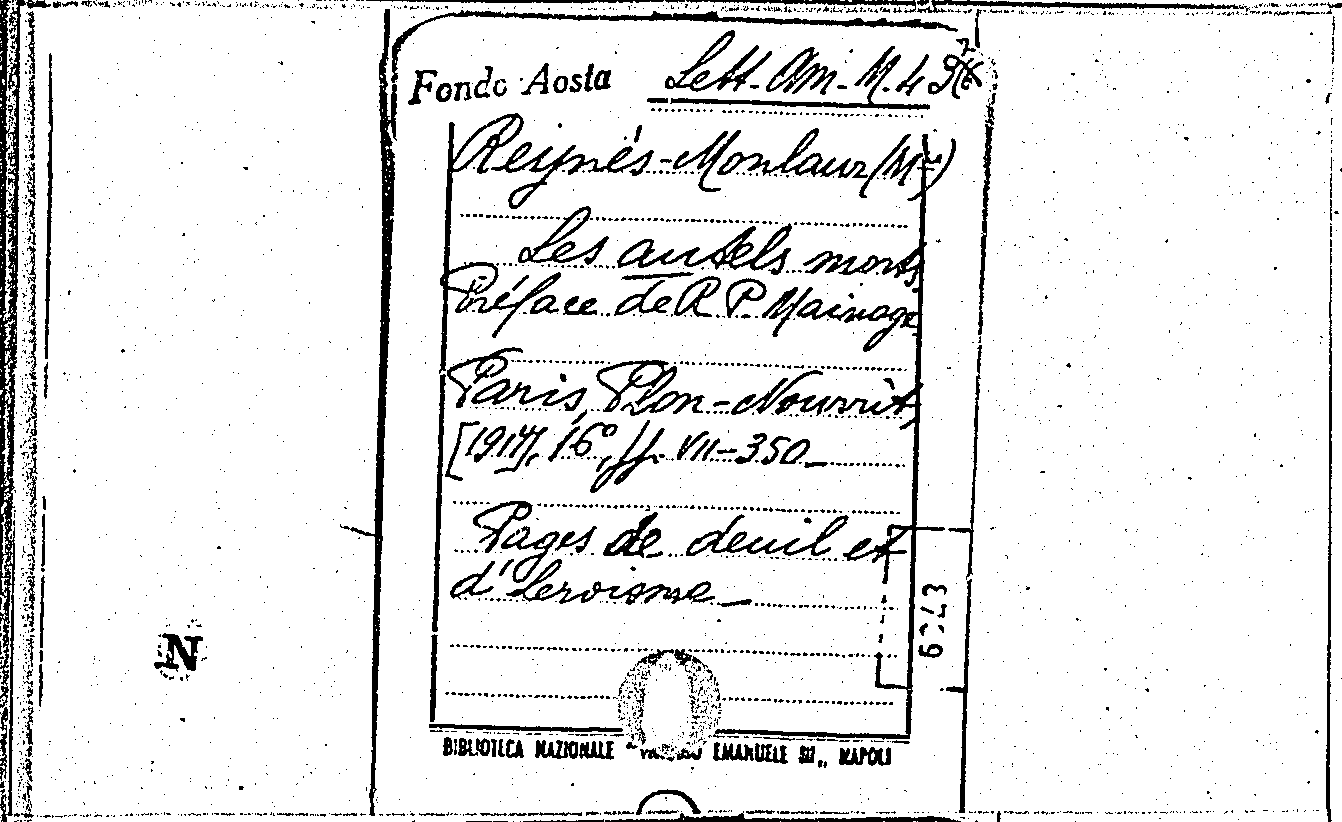 Fondo Aosta Lett. Am. M. 4
Reynès-Monlaur (Mme)
Les autels morts
Préface de R P. Mainage
Paris, Plon-Nourrit,
[1917], 16°, ff. VII-350_
Pages de deuil et
d'heroisme_
6243
N
BIBLIOTECA NAZIONALE " EMANUELE III „ NAPOLI